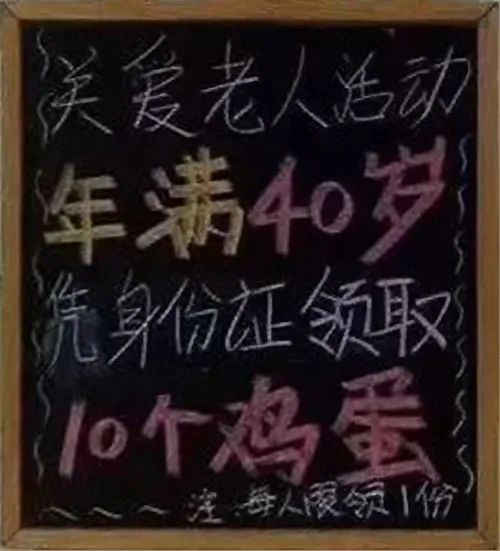 关爱老人活动
年满40岁
凭身份证领取
10个鸡蛋
注 每人限领1份